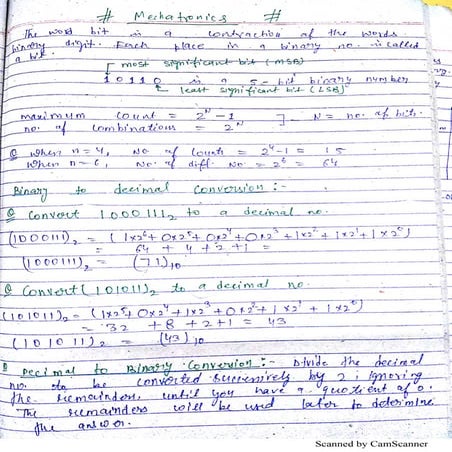 # Mechatronics #
The word bit is a contraction of the words
binary digit. Each place in a binary no. is called
a bit.
most significant bit (MSB)
10110 is a 5-bit binary number
least significant bit (LSB)
maximum count = 2^N - 1
no. of combinations = 2^N ] - N = no. of bits.
Q when n=4, No of counts = 2^4-1 = 15
when n=6, No. of diff. No = 2^6 = 64
Binary to decimal conversion :-
Q Convert 1000111_2 to a decimal no.
(1000111)_2 = (1x2^6+0x2^5+0x2^4+0x2^3+1x2^2+1x2^1+1x2^0)
= 64 + 4 + 2 + 1 =
(1000111)_2 = (71)_10
Q Convert (101011)_2 to a decimal no.
(101011)_2 = (1x2^5+0x2^4+1x2^3+0x2^2+1x2^1+1x2^0)
= 32 + 8 + 2 + 1 = 43
(101011)_2 = (43)_10
Decimal to Binary Conversion :- Divide the decimal
no. to be converted successively by 2; ignoring
the remainders, until you have a quotient of 0.
The remainders will be used later to determine
the answer.
Scanned by CamScanner